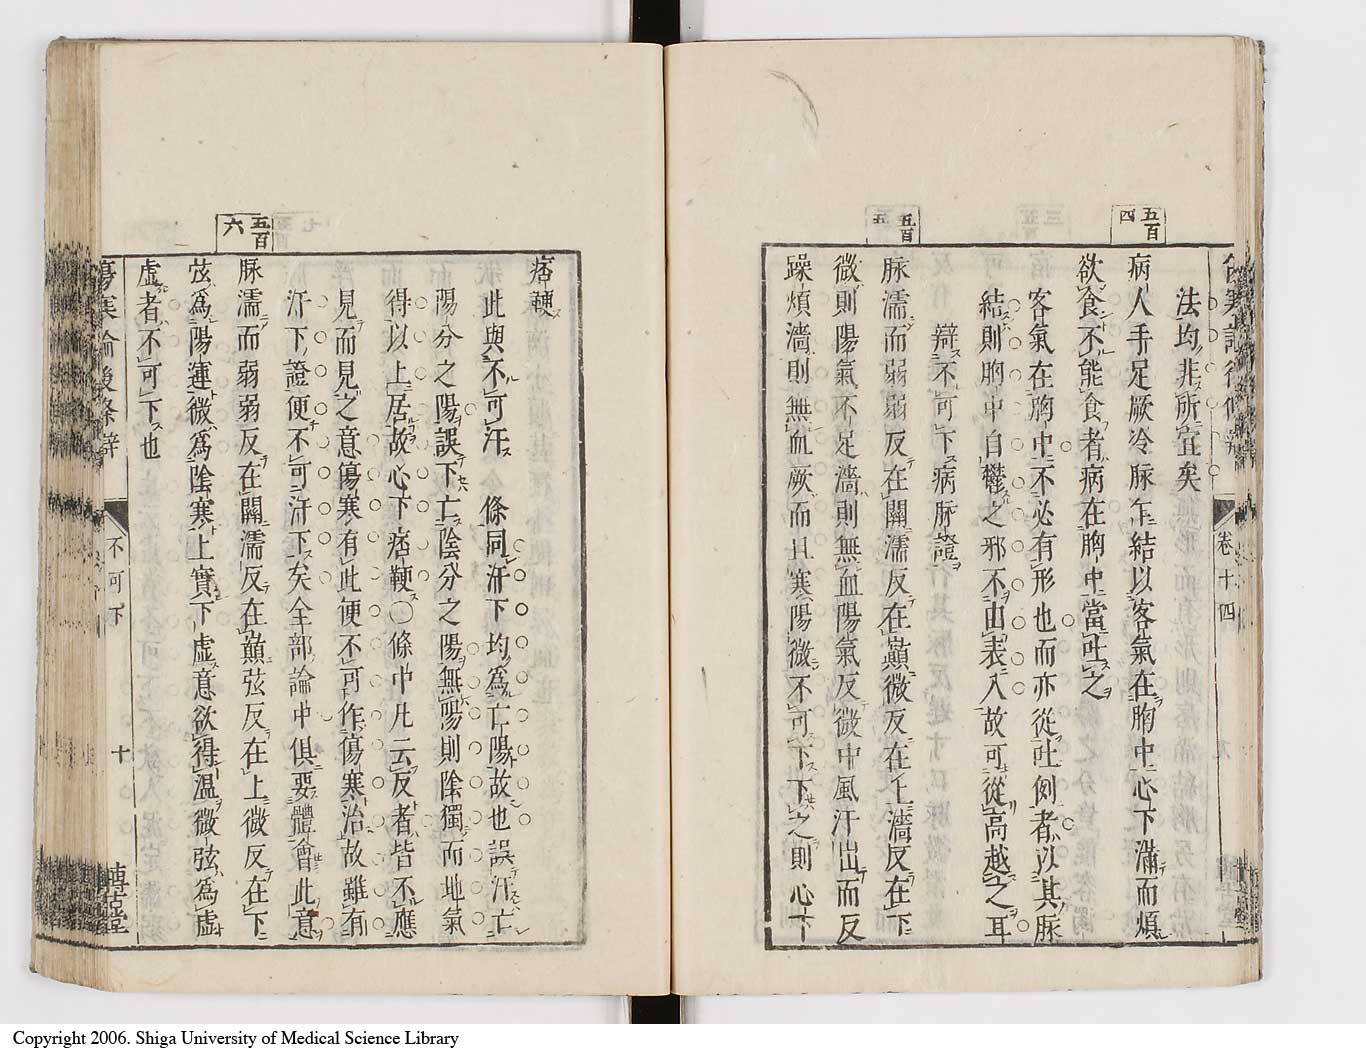 五百四
法均非所宜矣
病人手足厥冷脉乍結以客氣在胸中心下滿而煩
欲食不能食者病在胸中當吐之
客氣在胸中不必有形也而亦從吐例者以其脉
結則胸中自鬱之邪不由表入故可從高越之耳
辯不可下病脉證
五百五
脉濡而弱弱反在關濡反在巔微反在上濇反在下
微則陽氣不足濇則無血陽氣反微中風汗出而反
躁煩濇則無血厥而且寒陽微不可下下之則心下
卷十四
痞鞕
此與不可汗條同汗下均為亡陽故也誤汗亡
陽分之陽誤下亡陰分之陽無陽則陰獨而地氣
得以上居故心下痞鞕〇條中凡云反者皆不應
見而見之意傷寒有此便不可作傷寒治故雖有
汗下證便不可汗下矣全部論中俱要體會此意
五百六
脉濡而弱弱反在關濡反在巔弦反在上微反在下
弦為陽運微為陰寒上實下虛意欲得溫微弦為虛
虛者不可下也
傷寒論後條辯
不可下
十
博古堂
Copyright 2006. Shiga University of Medical Science Library